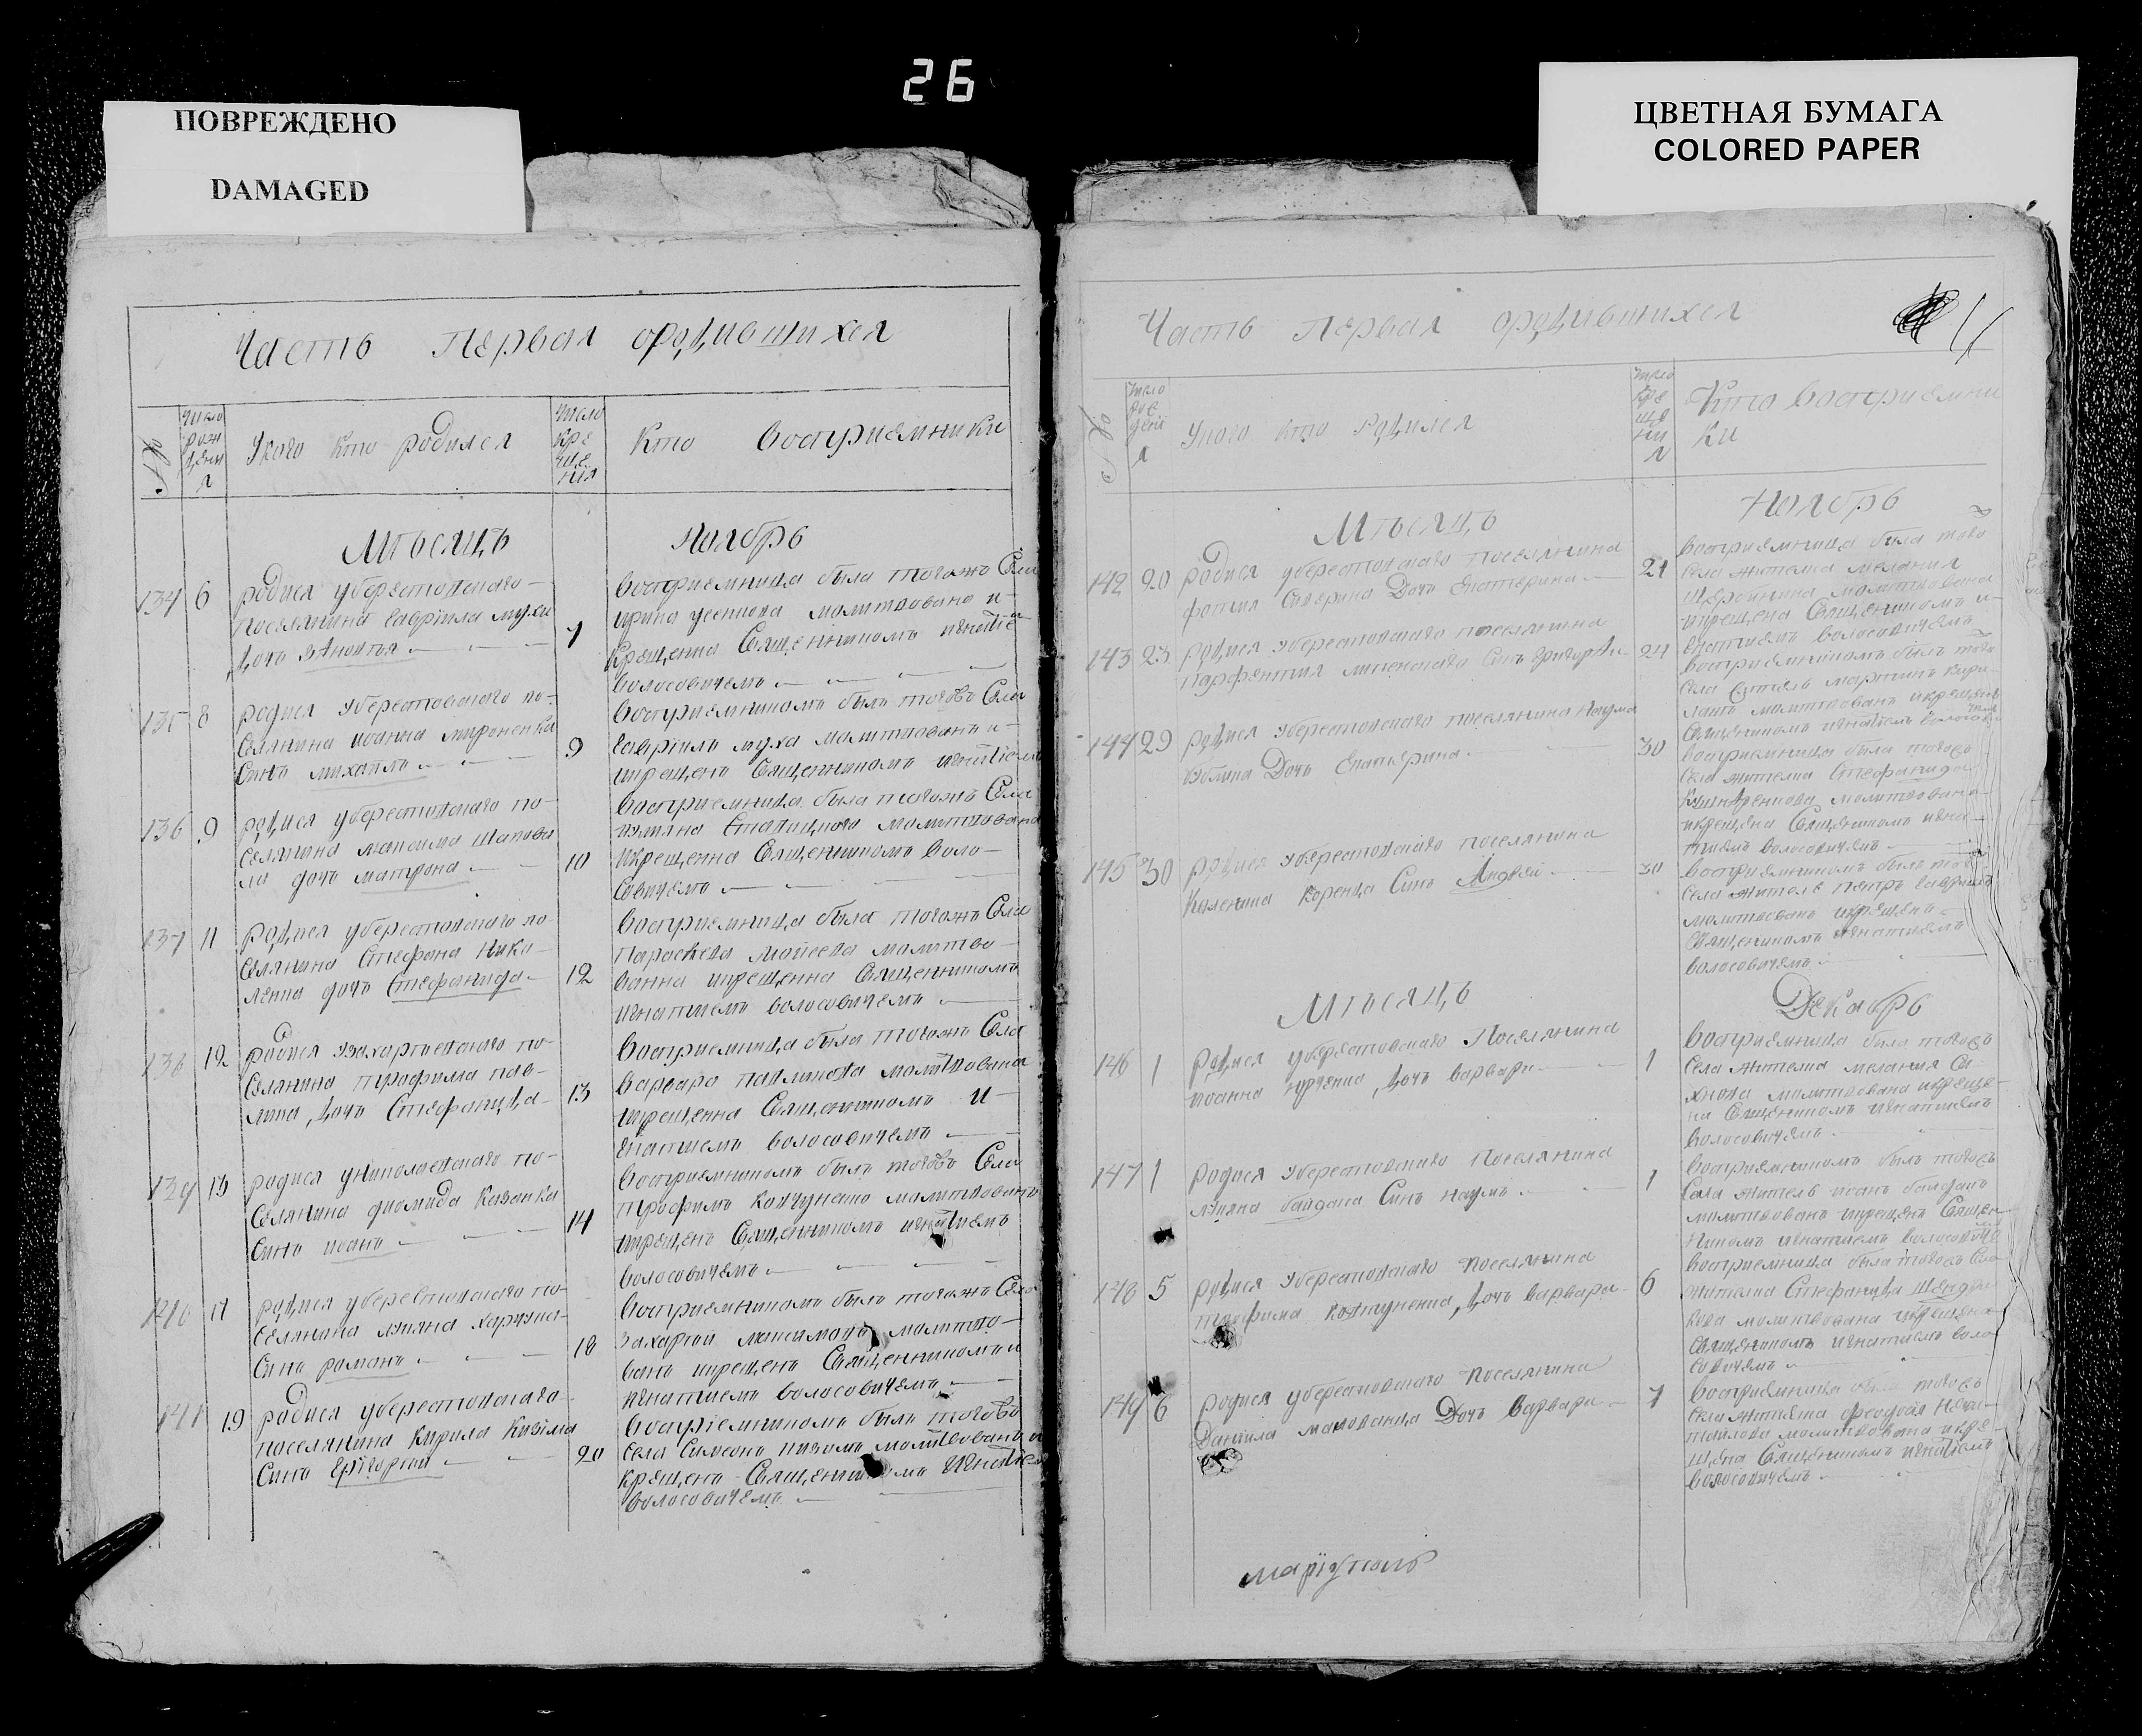 26
ПОВРЕЖДЕНО
DAMAGED
ЦВЕТНАЯ БУМАГА
COLORED PAPER
Часть Первая ородившихся
№
Число рожденія
Укого Кто родился
Число крещенія
Кто Восприемники
Мѣсяцъ Ноябрь
134 6
родися уберестовскаго
поселянина Гавріила мухи
Дочь
7
восприемница была тогожъ Села
ирина усенкова молитвована и
Крещенна Священникомъ игнатіе
волосовичемъ
135 8
родися уберестовскаго по-
селянина иоанна мироненка
Синъ михаилъ
9
восприемникомъ былъ тогожъ Села
Гавріилъ муха молитвованъ и
крещенъ Священникомъ игнатіемъ
136 9
родися уберестовскаго по-
селянина максима Шапова
ла дочь матрона
10
восприемница была тогожъ Села
молитвована
икрещенна Священникомъ Воло-
совичемъ
137 11
родися уберестовскаго по
селянина Стефана Нико-
ленка дочь Стефанида
12
восприемница была тогожъ Села
Параскева Мойсеева молитво-
ванна икрещенна Священникомъ
игнатиемъ волосовичемъ
138 12
родися узахарьевскаго по-
селянина трофима пав-
лика, дочь Стефанида
13
восприемница была тогожъ Села
варвара павликова молитвована
икрещенна Священникомъ И-
гнатиемъ волосовичемъ
139 13
родися униколаевскаго по-
селянина диомида Казанка
Синъ иоанъ
14
восприемникомъ былъ тогожъ Села
трофимъ молитвованъ
икрещенъ Священникомъ игнатіемъ
волосовичемъ
140 17
родися уберестовскаго по-
селянина лукяна
Синъ романъ
18
восприемникомъ былъ тогожъ Села
Захарій максимовъ молитво-
ванъ икрещенъ Священникомъ и
игнатиемъ волосовичемъ
141 19
родися уберестовскаго
поселянина Кирила Кизима
Синъ Григорий
20
воспріемникомъ былъ тогожъ
Села Симеонъ кизимъ молитвованъ и
крещенъ Священникомъ Игнатіем
волосовичемъ
Часть Первая ородившихся
№
Число рожденія
Укого кто Родился
Число крещенія
Кто восприемни
ки
Мѣсяцъ Ноябрь
142 20
родися уберестовскаго поселянина
фотия Саверина Дочь Екатерина
21
восприемница была того
Села жителка мелания
молитвована
икрещена Священникомъ и-
гнатиемъ волосовичемъ
143 23
родися уберестовскаго поселянина
Парфентия липовскаго Синъ Григорій
24
восприемникомъ былъ того
Села житель мартинъ
молитвованъ икрещенъ
Священникомъ игнатіемъ
144 29
родися уберестовскаго поселянина Наума
Дочь Екатерина
30
восприемница была тогожъ
Села жителка Стефанида
молитвована
икрещена Священникомъ игна-
тиемъ волосовичемъ
145 30
родися уберестовскаго поселянина
Каленика Коренца Синъ Андрей
30
восприемникомъ былъ того
Села житель петръ
молитвованъ икрещенъ
Священникомъ игнатиемъ
волосовичемъ
Мѣсяцъ Декабрь
146 1
родися уберестовскаго Поселянина
иоанна дочь варвара
1
восприемница была тогожъ
Села жителка мелания
молитвована икреще-
на Священникомъ игнатиемъ
волосовичемъ
147 1
родися уберестовскаго Поселянина
лукяна байдака Синъ наумъ
1
восприемникомъ былъ тогожъ
Села житель иоанъ байдакъ
молитвованъ икрещенъ Священ-
никомъ игнатиемъ
148 5
родися уберестовскаго Поселянина
трофима дочь варвара
6
восприемница была тогожъ Села
жителка Стефанида
молитвована икрещена
Священникомъ игнатиемъ воло
совичемъ
149 6
родися уберестовскаго Поселянина
Даніила маковецкаго Дочь варвара
7
восприемница была тогожъ
Села жителка феодосия
молитвована икре-
щена Священникомъ игнатіемъ
волосовичемъ
маріуполь